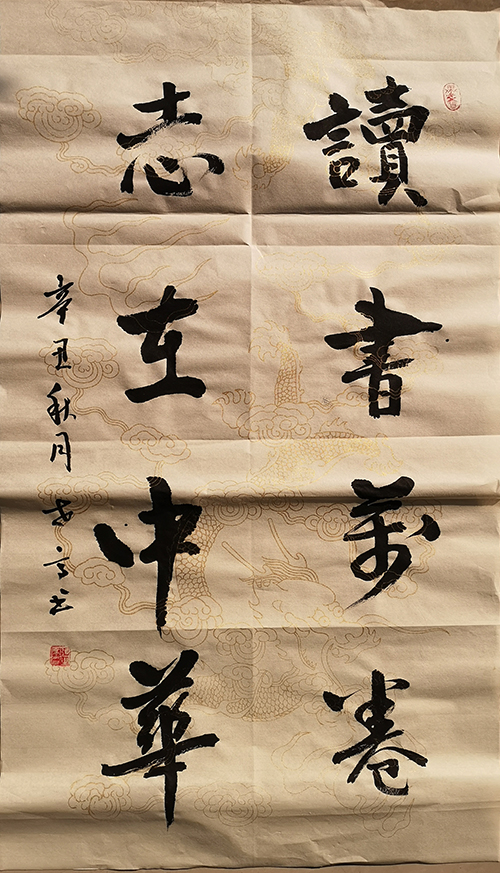 讀書萬卷
志在中華
辛丑秋月
書